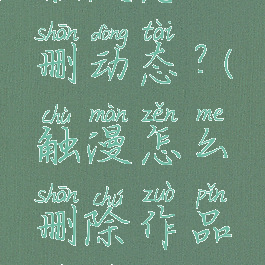 shān dòng tài
删动态？(
chù màn zěn me
触漫怎么
shān chú zuò pǐn
删除作品